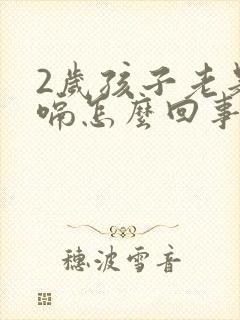 2歲孩子老是
喘怎麼回事
穗波雪音